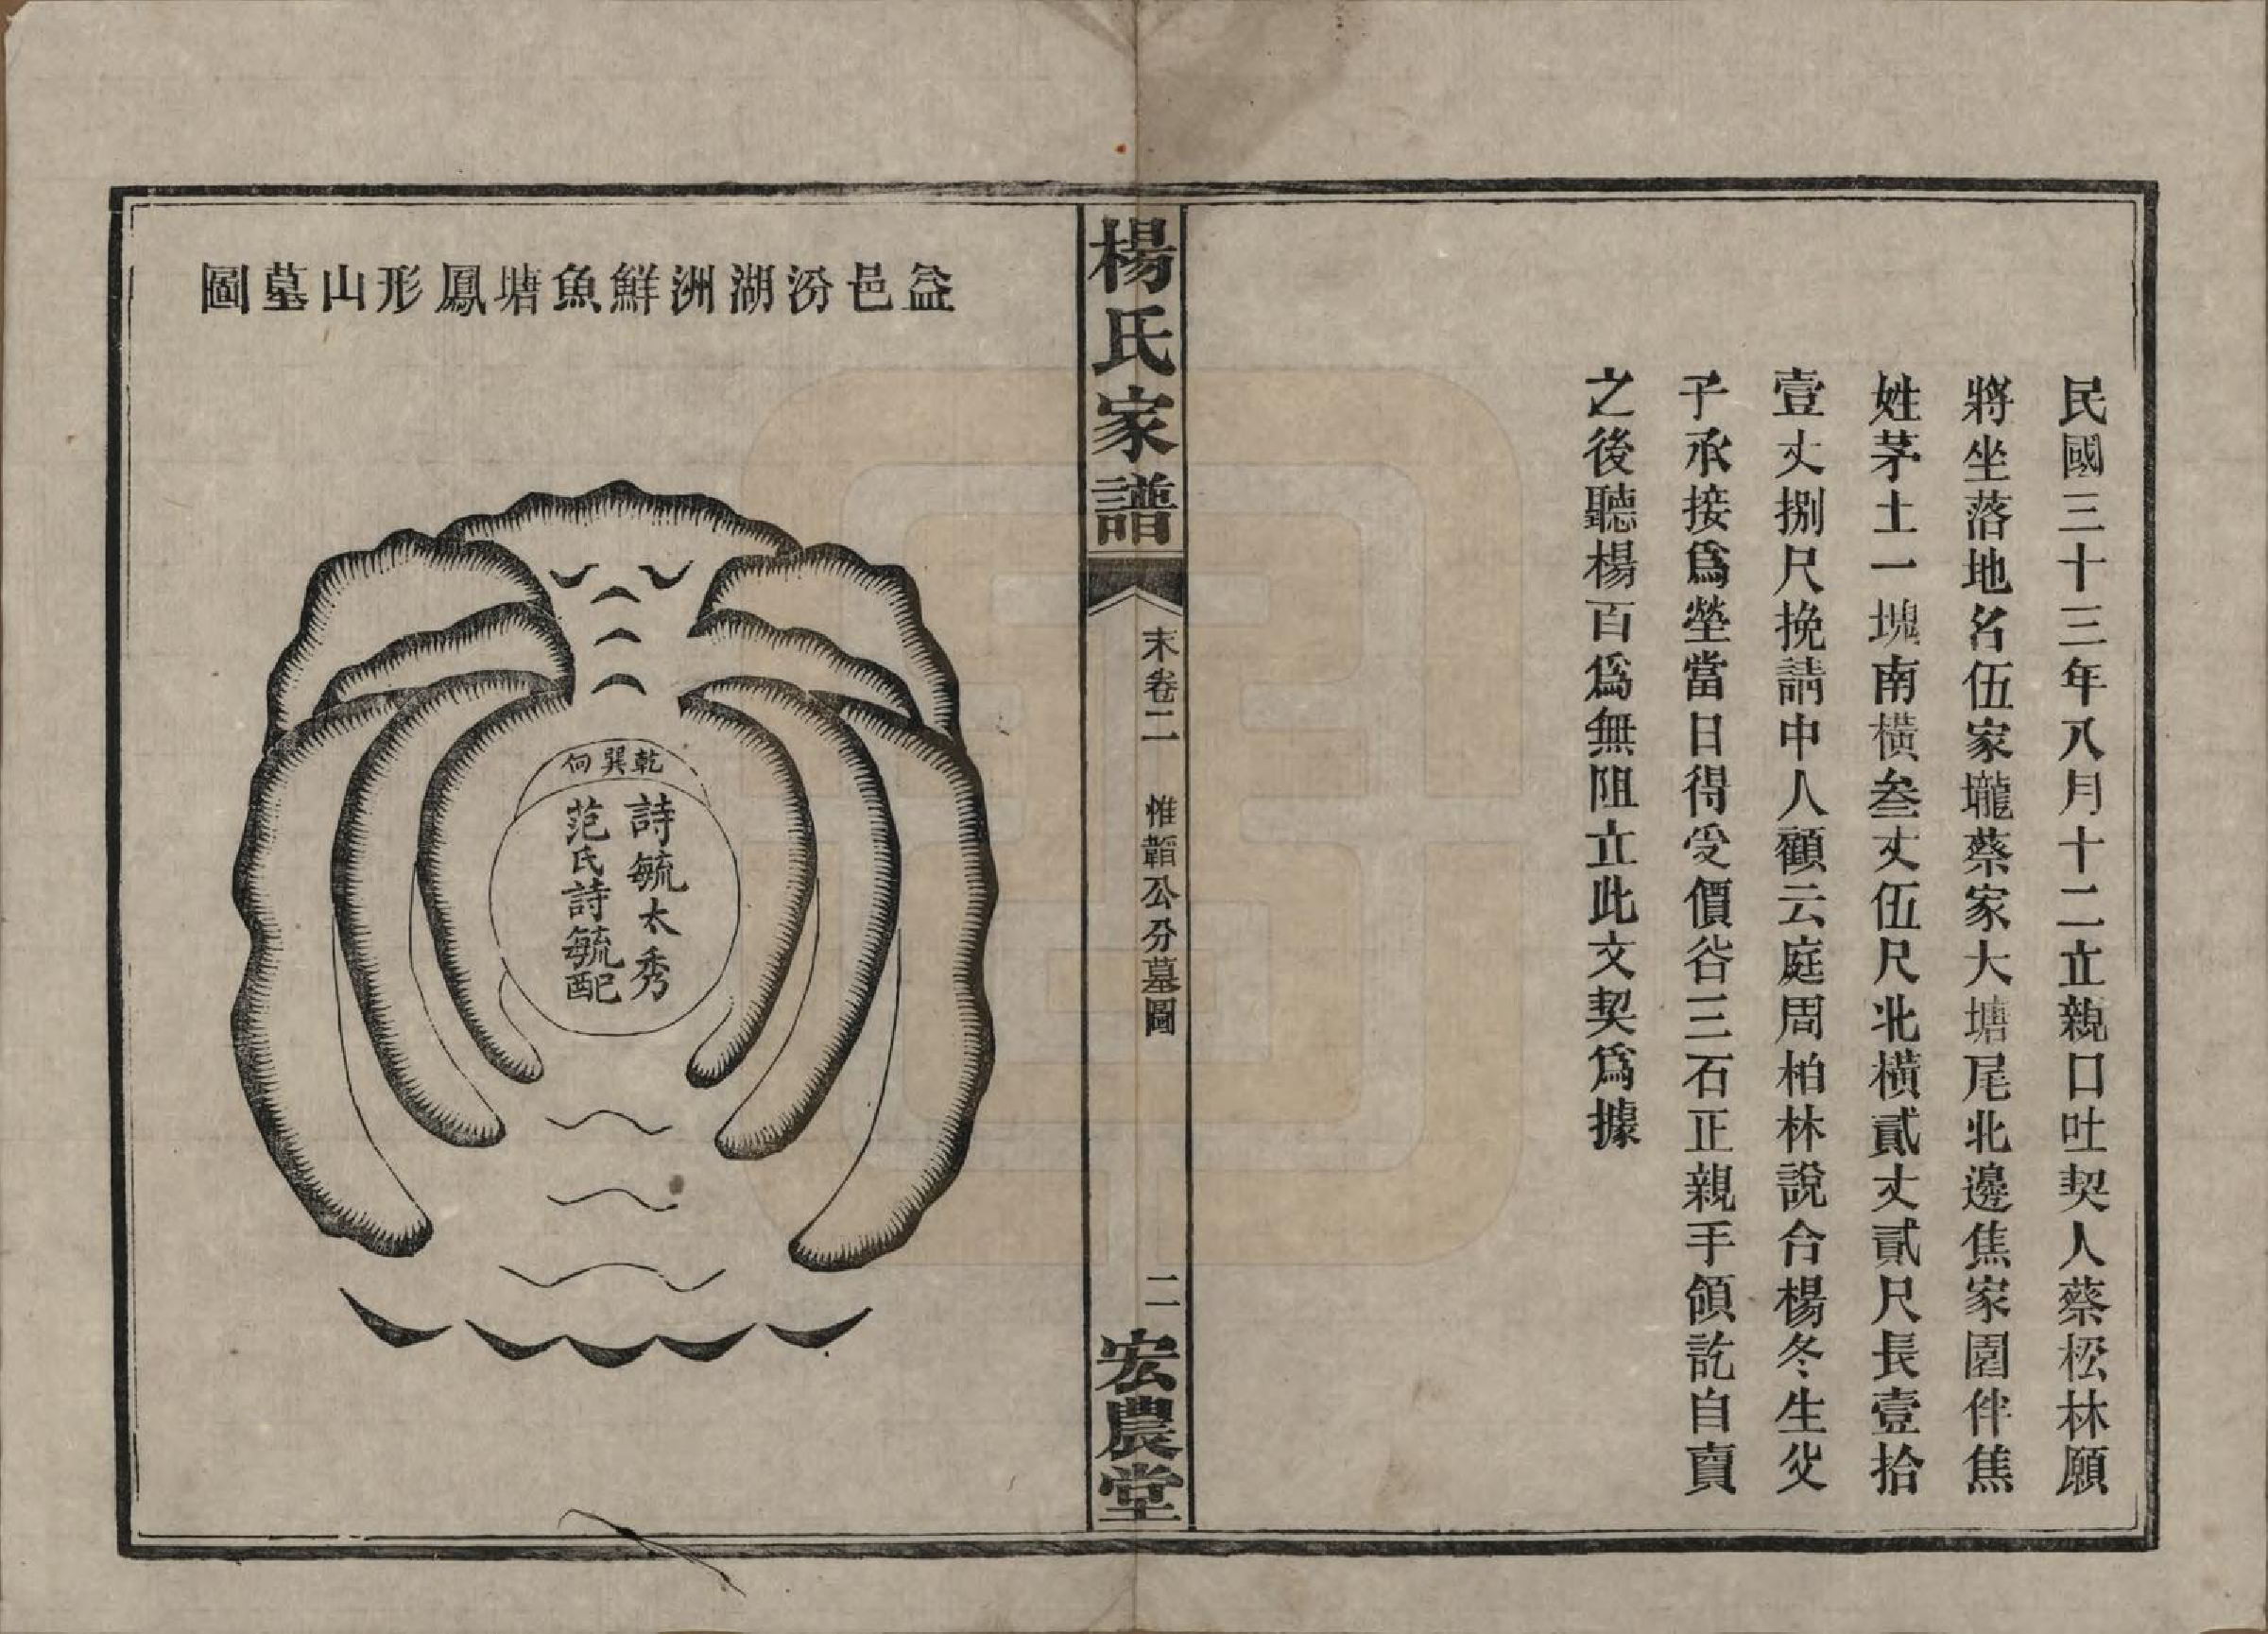 民國三十三年八月十二立親口吐契人蔡松林願
將坐落地名伍家壠蔡家大塘尾北邊焦家園伴焦
姓茅土一塊南橫叁丈伍尺北橫貳丈貳尺長壹拾
壹丈捌尺挽請中人顧云庭周柏林說合楊冬生父
子承接爲塋當日得受價谷三石正親手領訖自賣
之後聽楊百爲無阻立此文契爲據
楊氏家譜
末卷二 惟韜公分墓圖
二
宏農堂
益邑汾湖洲鮮魚塘鳳形山墓圖
乾巽向
詩毓太秀
范氏詩毓配